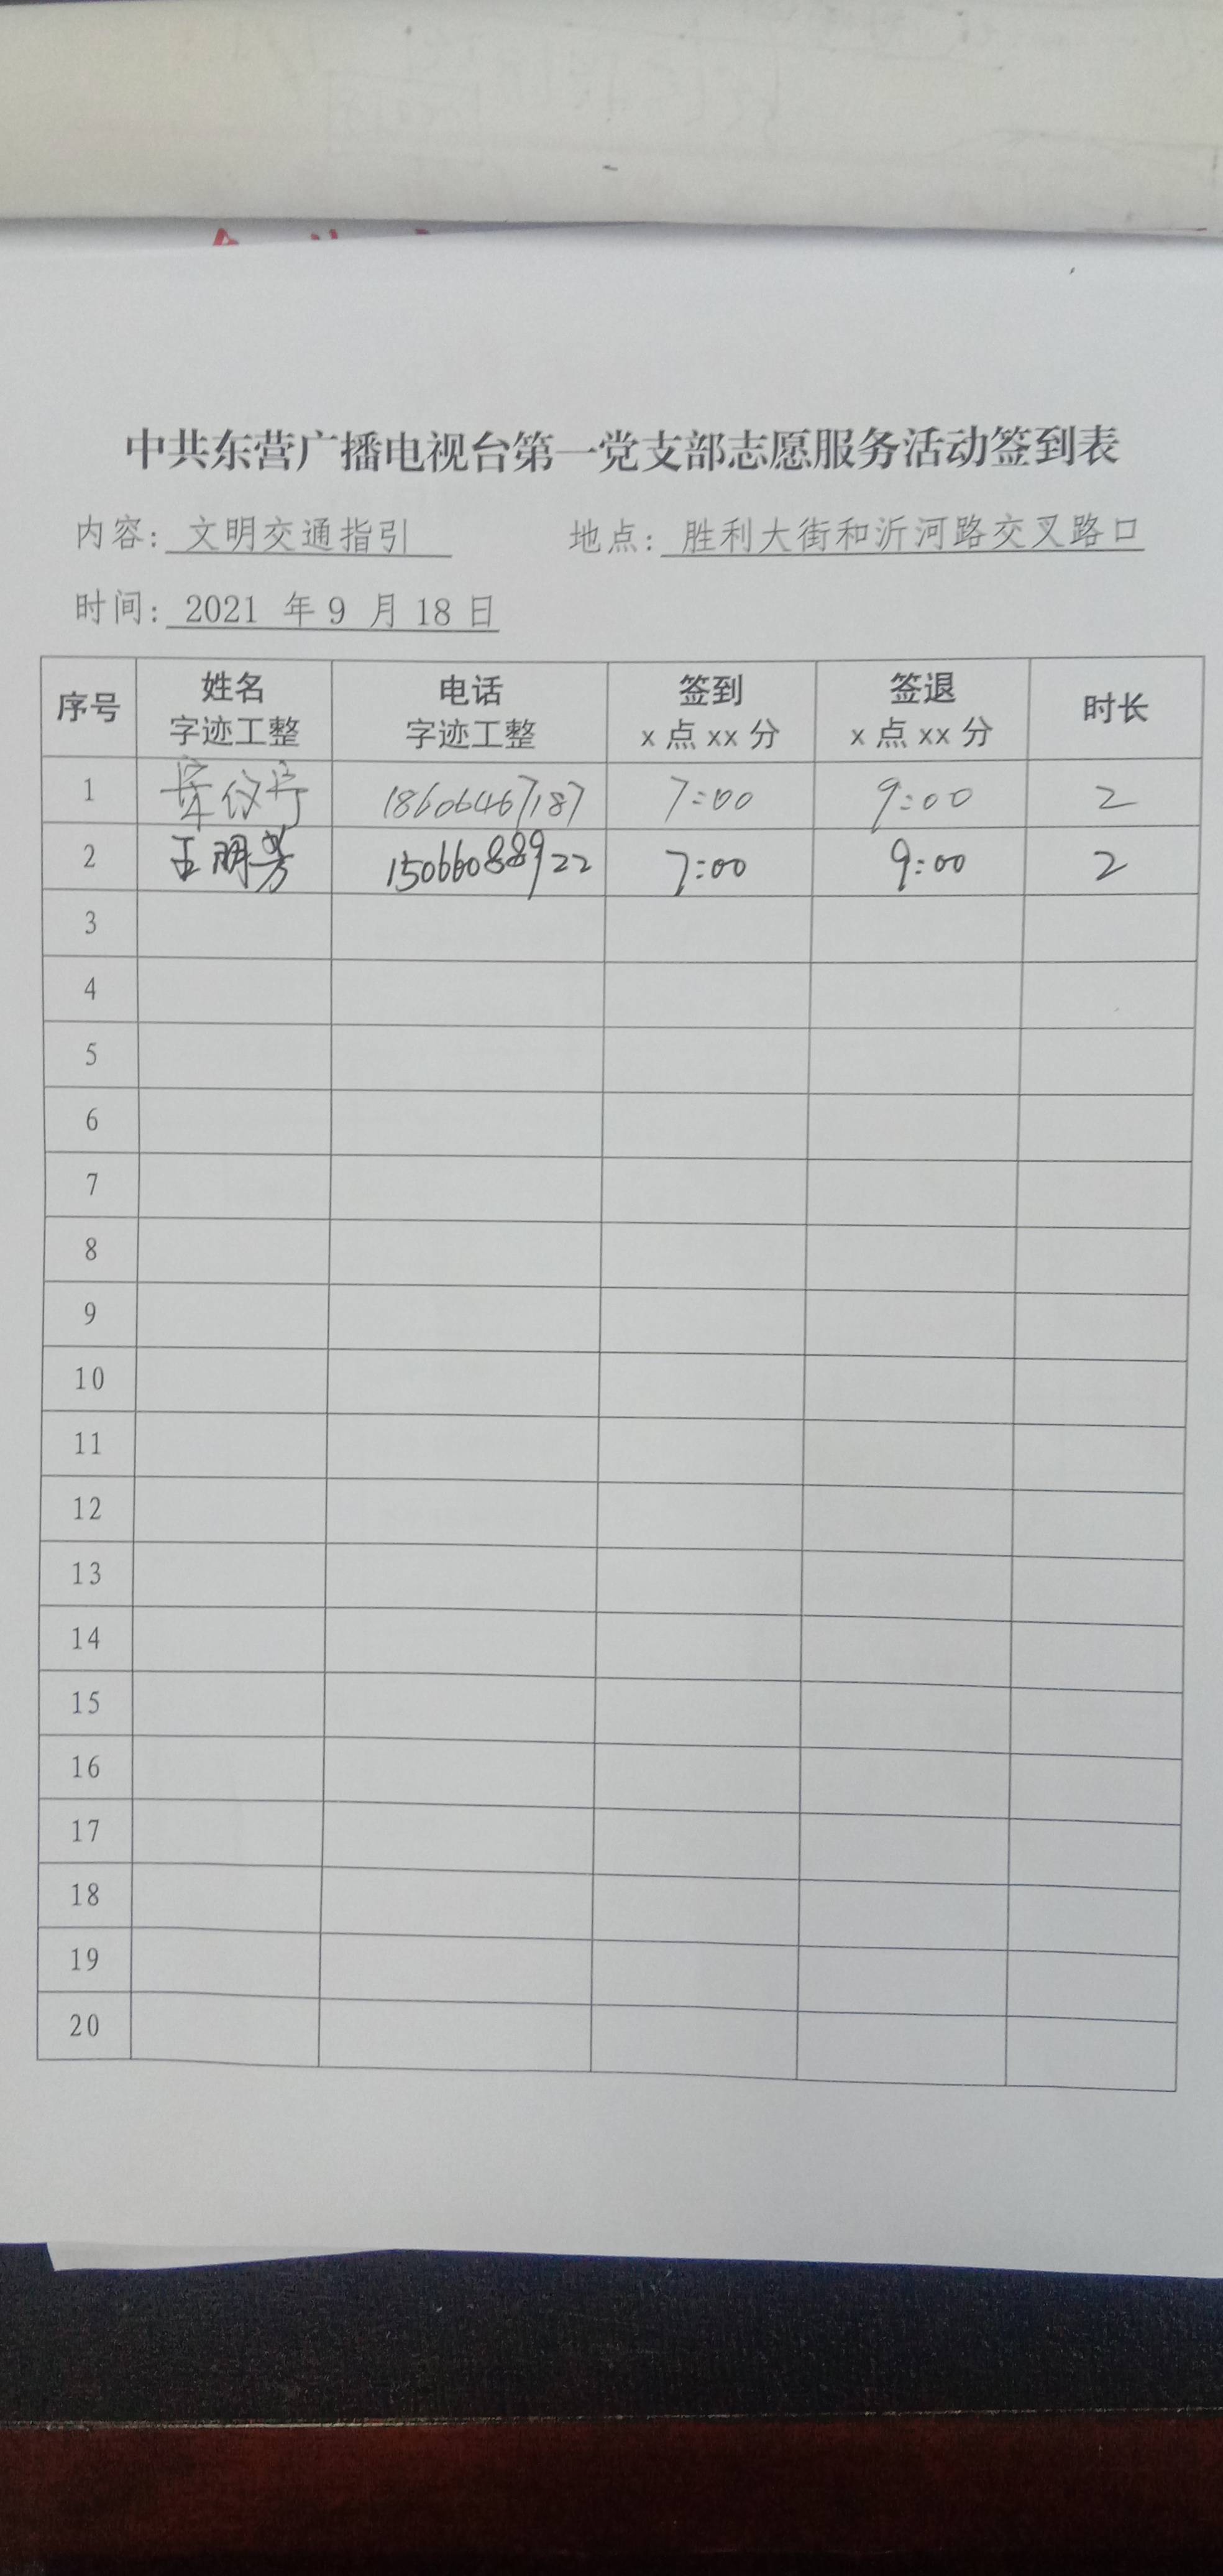 中共东营广播电视台第一党支部志愿服务活动签到表
内容: 文明交通指引 地点: 胜利大街和沂河路交叉路口
时间: 2021 年 9 月 18 日
序号 姓名 字迹工整 电话 字迹工整 签到 x 点 xx 分 签退 x 点 xx 分 时长
1 18606467187 7:00 9:00 2
2 王明芳 15066088922 7:00 9:00 2
3
4
5
6
7
8
9
10
11
12
13
14
15
16
17
18
19
20